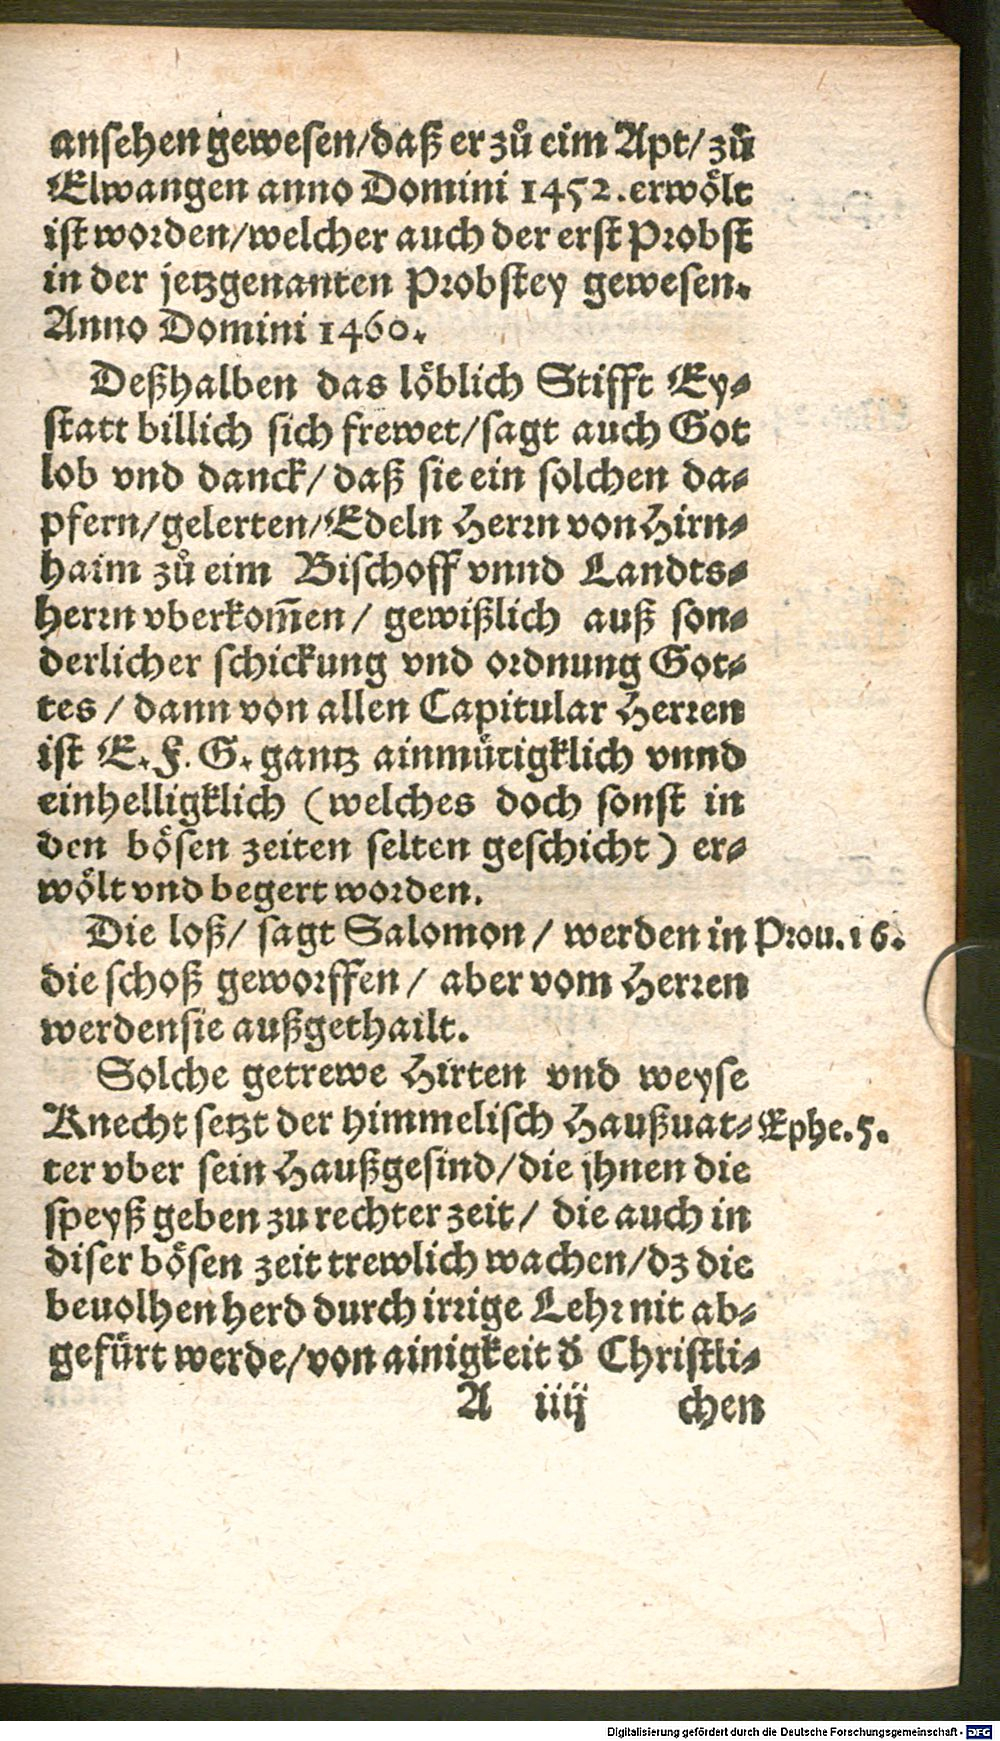 ansehen gewesen/daß er zů eim Apt/ zů
Elwangen anno Domini 1452. erwölt
ist worden/welcher auch der erst Probst
in der jetzgenanten Probstey gewesen.
Anno Domini 1460.
Deßhalben das löblich Stifft Ey-
statt billich sich frewet/sagt auch Got
lob vnd danck/ daß sie ein solchen da-
pfern/gelerten/Edeln Herrn von Hirn-
haim zů eim Bischoff vnnd Landts-
herrn vberkom̃en/ gewißlich auß son-
derlicher schickung vnd ordnung Got-
tes / dann von allen Capitular Herren
ist E. F. G. gantz ainmütigklich vnnd
einhelligklich (welches doch sonst in
den bösen zeiten selten geschicht) er-
wölt vnd begert worden.
Die loß/ sagt Salomon / werden in Prou. 16.
die schoß geworffen / aber vom Herren
werden sie außgethailt.
Solche getrewe Hirten vnd weyse
Knecht setzt der himmelisch Haußuat- Ephe. 5.
ter vber sein Haußgesind/die jhnen die
speyß geben zu rechter zeit/ die auch in
diser bösen zeit trewlich wachen/dz die
beuolhen herd durch irrige Lehr nit ab-
gefürt werde/von ainigkeit d̕ Christli-
A iiij chen
Digitalisierung gefördert durch die Deutsche Forschungsgemeinschaft - DFG